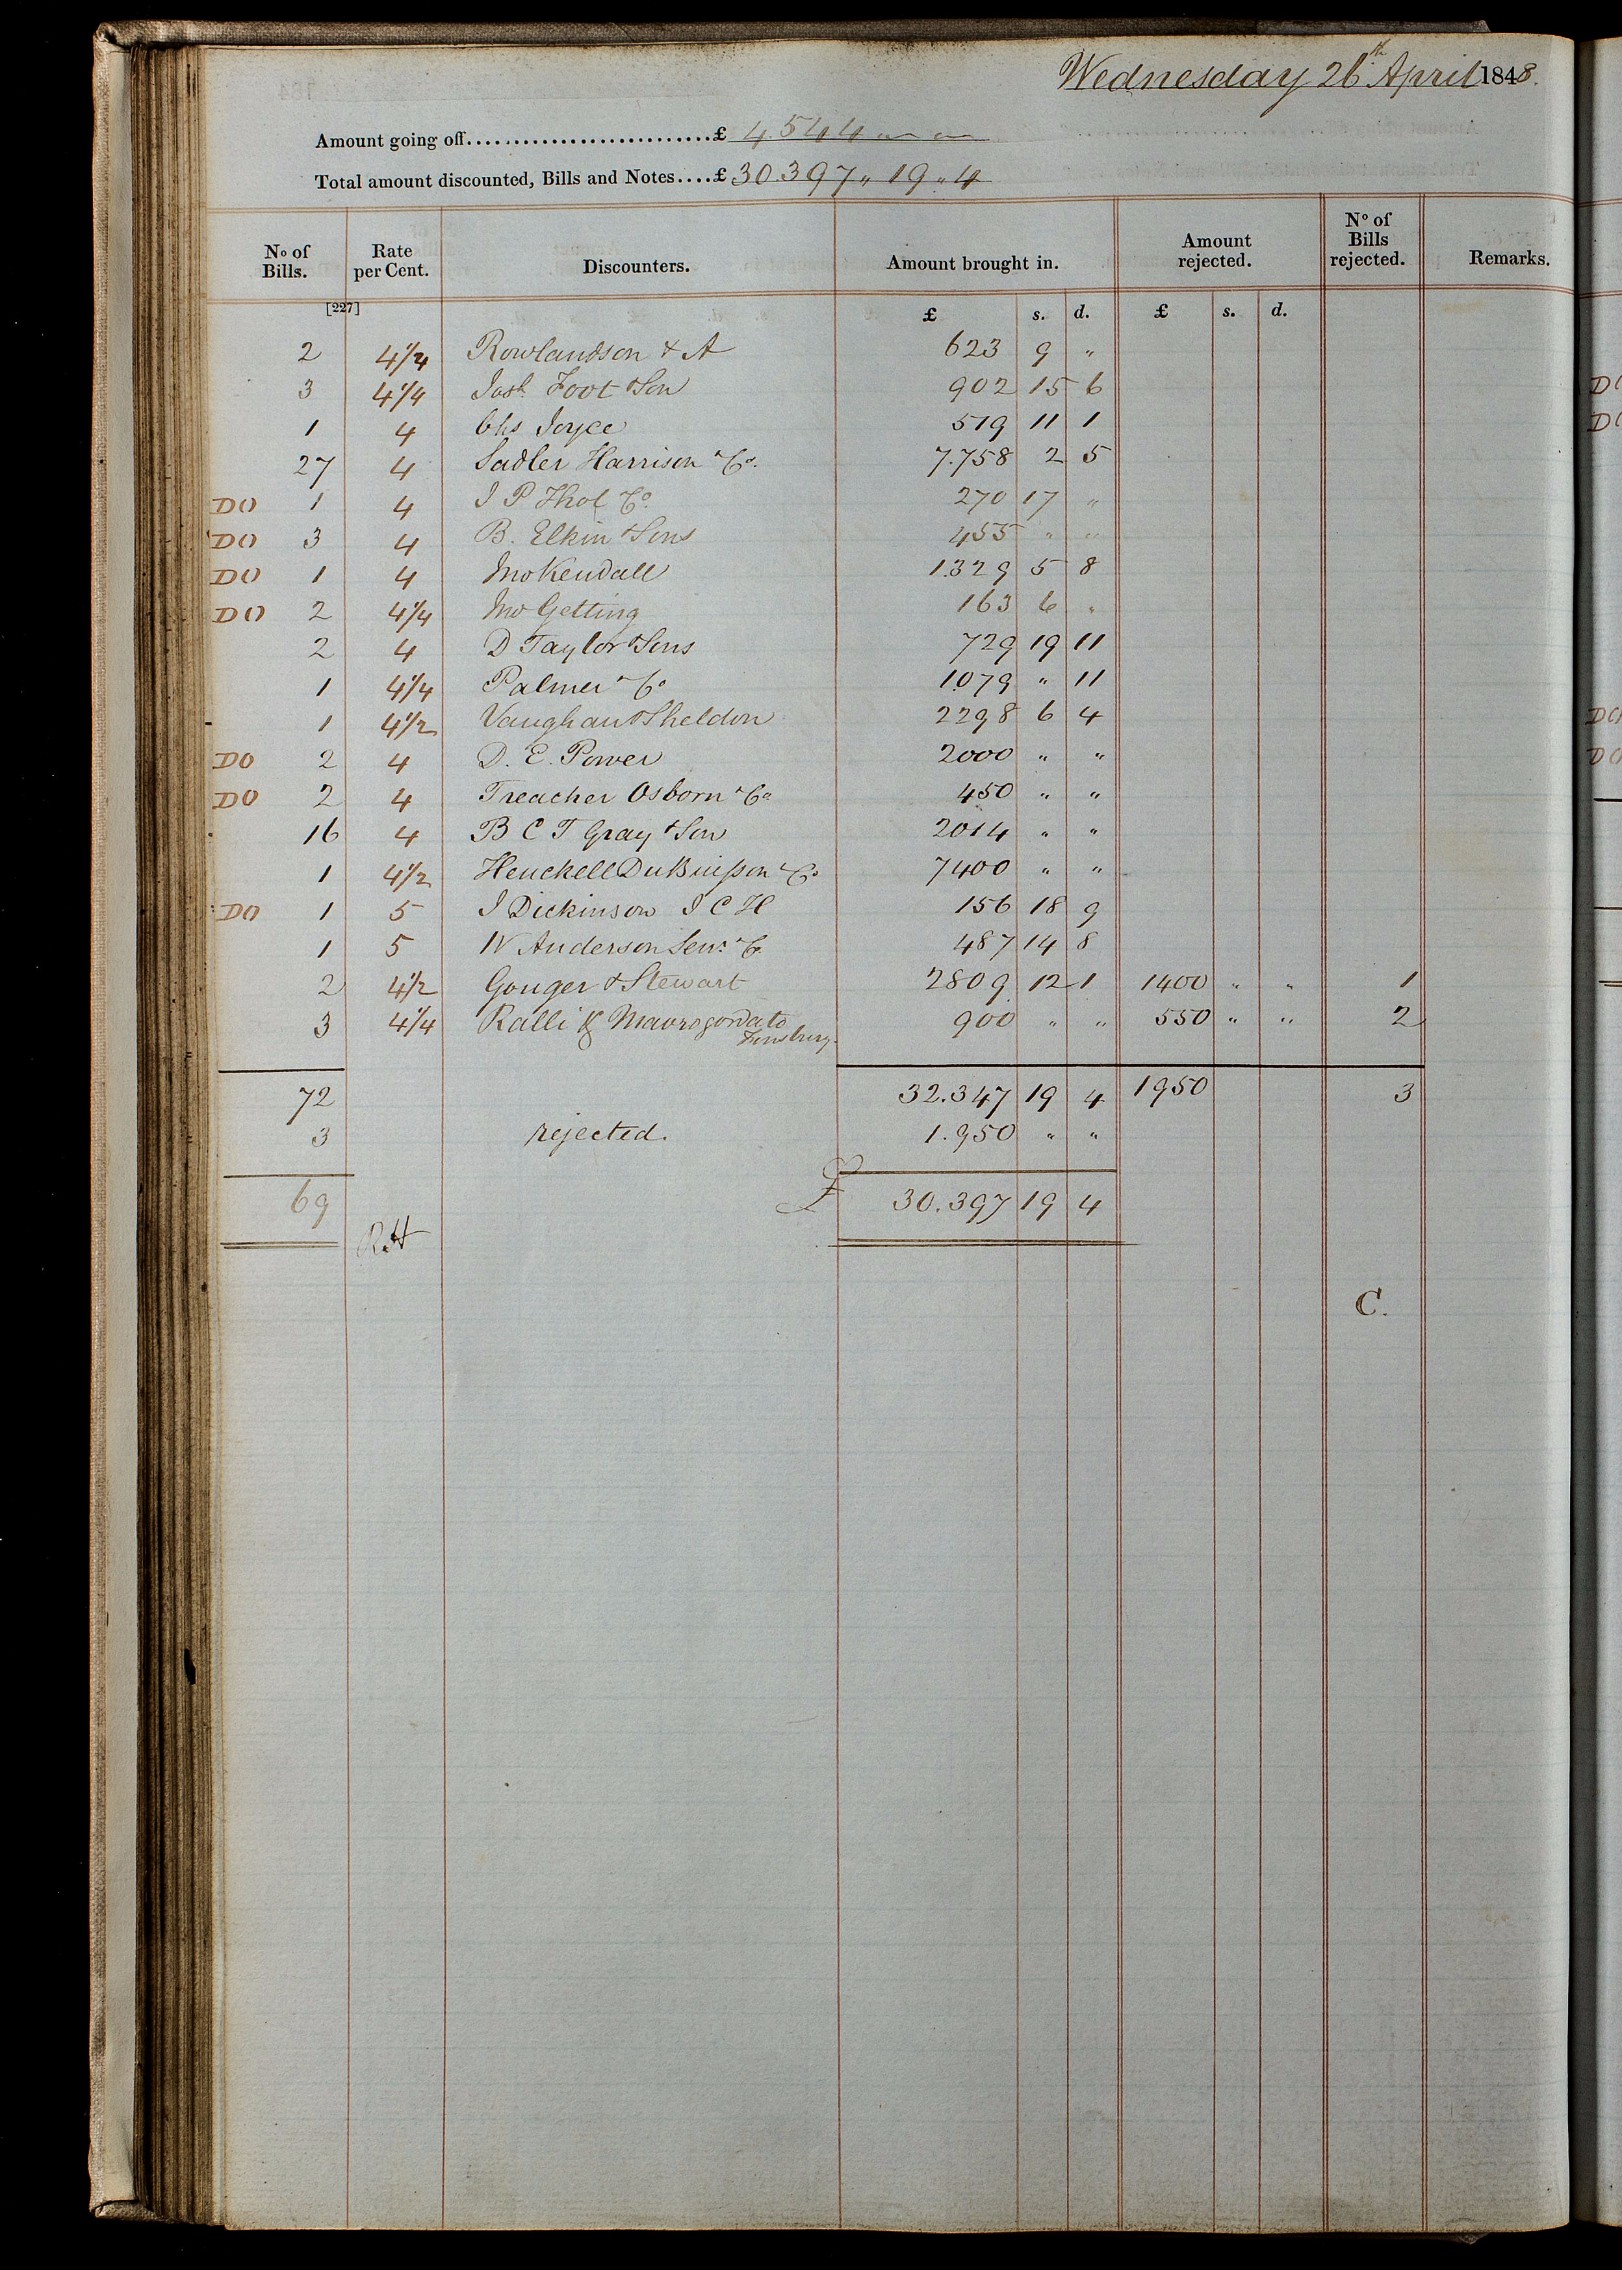 Wednesday 26th April 1848.
Amount going off..........................£ 4.544 " "
Total amount discounted, Bills and Notes....£ 30.397 " 19 " 4
No of Bills. Rate per Cent. Discounters. Amount brought in. Amount rejected. No of Bills rejected. Remarks.
[227] £ s. d. £ s. d.
2 4 1/4 Rowlandson & A 623 9 "
3 4 1/4 Josh Foot & Son 902 15 6
1 4 Chs Joyce 519 11 1
27 4 Sadler Harrison & Co. 7.758 2 5
DO 1 4 J P Thol & Co. 270 17 "
DO 3 4 B. Elkin & Sons 455 " "
DO 1 4 Jno Kendall 1.329 5 8
DO 2 4 1/4 Jno Getting 163 6 "
2 4 D Taylor & Sons 729 19 11
1 4 1/4 Palmer & Co 1.079 " 11
1 4 1/2 Vaughan & Sheldon 2298 6 4
DO 2 4 D. E. Power 2000 " "
DO 2 4 Treacher Osborn & Co 450 " "
16 4 B C T Gray & Son 2014 " "
1 4 1/2 Henckell DuBuisson & Co 7400 " "
DO 1 5 J Dickinson J C H 156 18 9
1 5 W Anderson Senr & Co 487 14 8
2 4 1/2 Gouger & Stewart 2809 12 1 1400 " " 1
3 4 1/4 Ralli & Mavrogordato 900 " " 550 " " 2
Finsbury.
72 32.347 19 4 1950 3
3 rejected. 1.950 " "
69 £ 30.397 19 4
R.H
C.